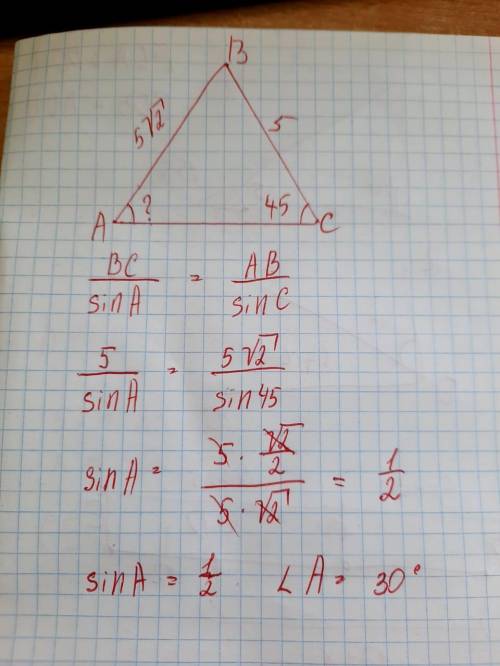 B
5√2 5
A ? 45 C
BC/sinA = AB/sinC
5/sinA = 5√2/sin45
sinA = (5 · √2/2)/(5 · √2) = 1/2
sinA = 1/2 ∠A = 30°